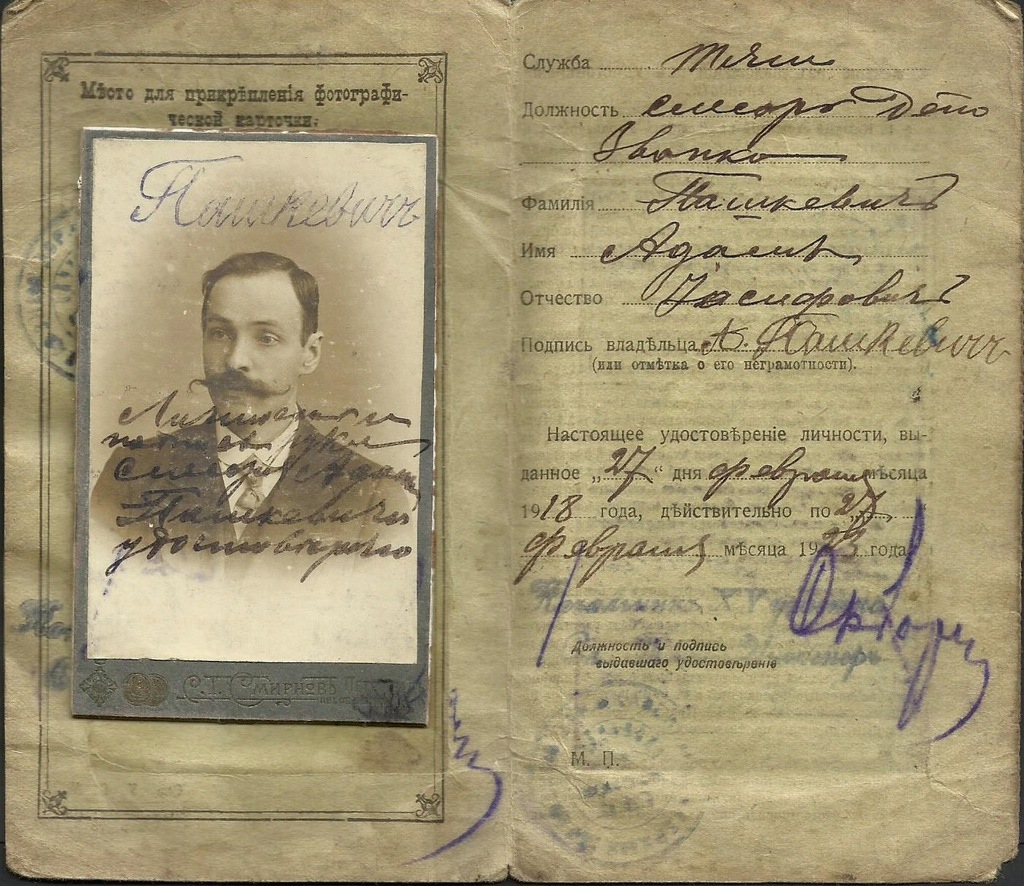 Мѣсто для прикрѣпленія фотографи-
ческой карточки.
Пашкевичъ
Личность и
слесаря Адама
Пашкевича
удостовѣряю
С.Т. Смирновъ
Служба Тяги
Должность слесарь Депо
Званка
Фамилія Пашкевичъ
Имя Адамъ
Отчество Іосифовичъ
Подпись владѣльца А. Пашкевичъ
(или отмѣтка о его неграмотности).
Настоящее удостовѣреніе личности, вы-
данное „27“ дня февраля мѣсяца
1918 года, дѣйствительно по „27
февраля мѣсяца 1923 года
Начальникъ XV участка
Должность и подпись
выдавшаго удостовѣреніе
М. П.